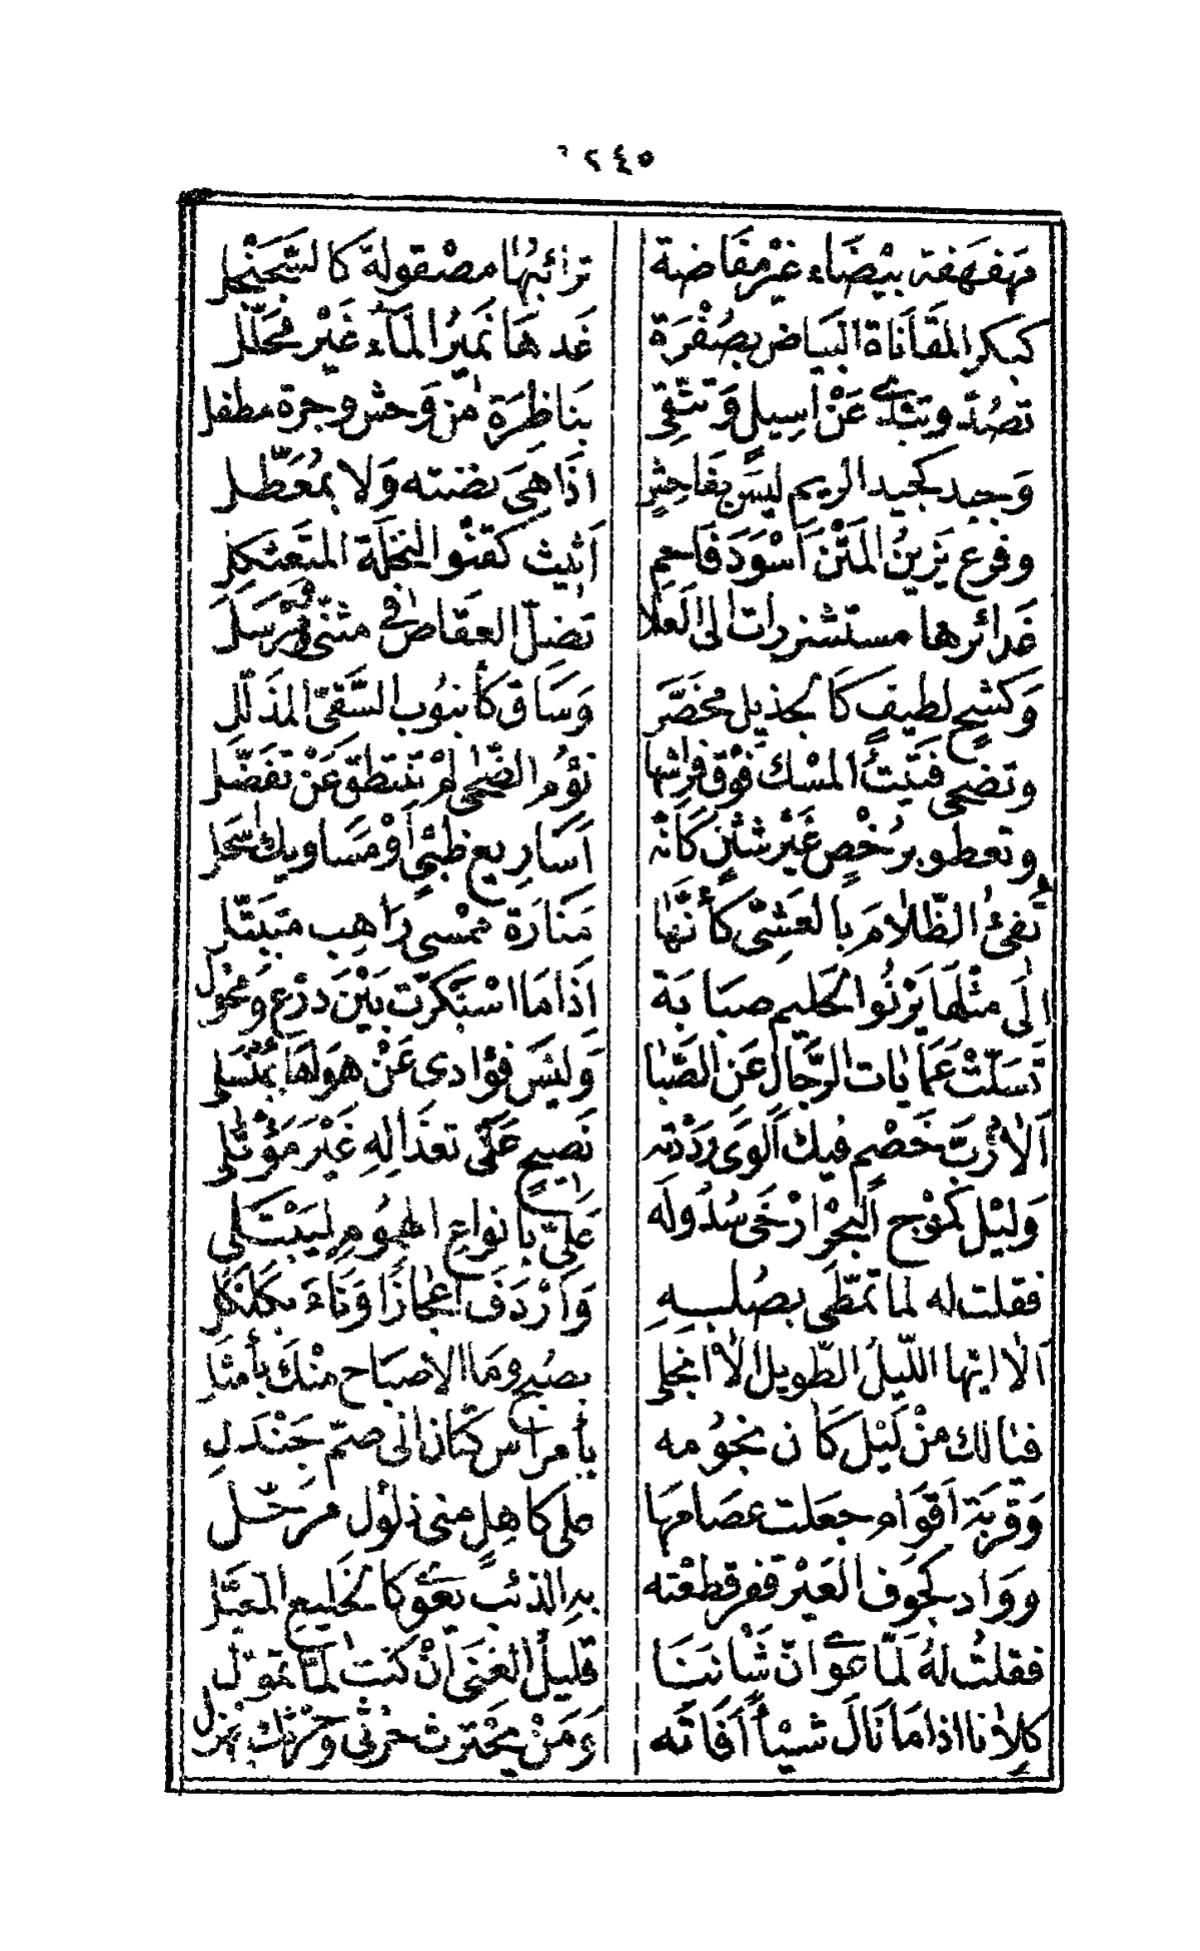 ٢٤٥
مهفهفة بيْضَاء غيْر مفَاضة ترائبُها مصْقولة كالسَّجَنْجل
كبكر المقَانَاة البَيَاض بصُفْرَة غَدهَا نَميرُ المَآء غَيْر مُحَلَّل
تصُدّ وتبْدى عَنْ اسِيلٍ وَتتّقِى بنَاظِرَة منْ وَحش وجرة مطفل
وَجيد كجيد الريم ليسَ بفَاحِشٍ اذَا هِىَ نضته وَلا بمُعَطَّل
وفرع يَزينُ المَتْنَ اسْوَدَ فَاحم اثيث كَقنْو النخلَة المتَعثكل
غَدائرها مستشزرات الى العَلا تضلّ العقَاص فى مثنّى وَمُرْسَل
وَكَشْحٍ لطيفٍ كَالجذيل مخَصَّر وَسَاق كأنبُوب السَّقىّ المذَلّل
وتضحى فتيتُ المسْك فَوْق فراشها نؤُم الضّحى لمْ تنتطق عَنْ تفَضّل
وتعطو برَخْصٍ غَيْر شثْنٍ كَانّه اسَارِيع ظبْىٍ اوْ مَسَاويك اسْحل
تضئُ الظّلامَ بالعَشِىّ كأنّها مَنَارَة ممْسى رَاهِب متَبَتّل
الى مثْلهَا يَرْنُوا الحَليم صبَابَة اذَا مَا اسْبَكرّت بَيْنَ درْع وَمجْول
تَسَلّتْ عَمَايات الرّجَال عَن الصّبا وَليْسَ فؤادى عَنْ هوَاهَا بمُنْسَلى
الا رُبّ خَصْم فيك الوَى رَدَدْته نَصيحٍ عَلى تعْذَالهِ غَيْر مَؤْتَلى
وَليْل كَموْج البَحْر ارْخَى سُدُولَه عَلىّ بانواع الهُمُوم ليَبْتَلى
فقلت له لما تمَطّى بصُلبهِ وَارْدَفَ اعْجَازًا وَنَاءَ بكَلْكَل
الا ايّها اللّيلُ الطّويل الا انجلى بصُبْحٍ وَمَا الاصبَاح منْكَ بأمثَل
فيا لك منْ لَيْل كَانَ نجُومه بأمرَاس كتّان الى صمّ جَنْدَلِ
وَقرْبَة اقوَام جعَلت عصَامهَا على كاهِلٍ منى ذلُول مرَحّل
ووَاد كجَوف العَيْر قفر قطعْته به الذئب يَعْوى كالخَليع المعَيَّل
فقلتُ لهُ لَمّا عَوى انّ شَانَنَا قليلُ الغنَى انْ كنتَ لمّا تموّل
كلانا اذا مَا نَالَ شيْأً افَاتَه وَمَنْ يحْترث حَرْثى وَحرْثك يهزل